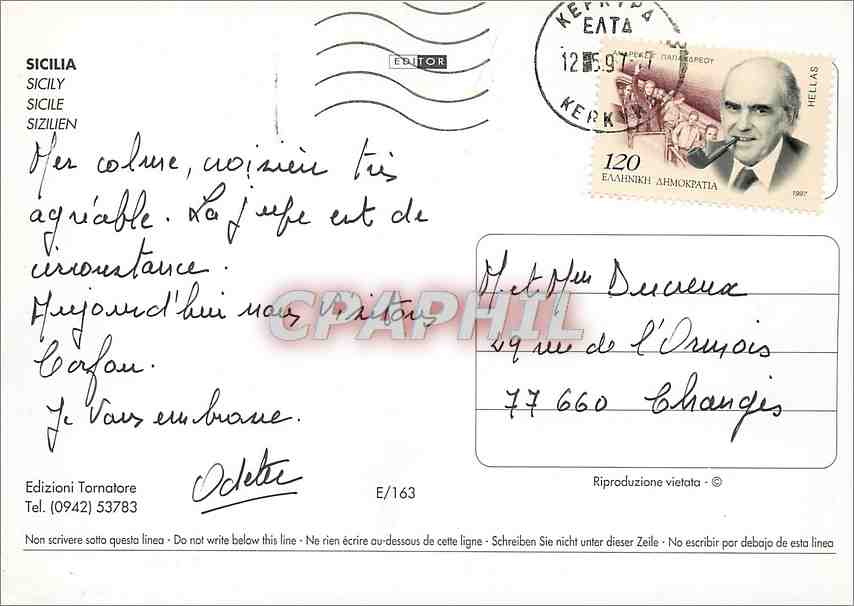 SICILIA
SICILY
SICILE
SIZILIEN
EDITOR
ΚΕΡΚΥΡΑ
ΕΛΤΑ
12 5.97
ΚΕΡΚΥΡΑ
ΑΝΔΡΕΑΣ Γ. ΠΑΠΑΝΔΡΕΟΥ
HELLAS
120
ΕΛΛΗΝΙΚΗ ΔΗΜΟΚΡΑΤΙΑ
1997
Mer calme, croisière très
agréable. La jupe est de
circonstance.
Aujourd'hui nous visitons
Corfou.
Je vous embrasse.
Odette
CPAPHIL
M et Mme Ducreux
29 rue de l'Ormois
77 660 Changis
Edizioni Tornatore
Tel. (0942) 53783
E/163
Riproduzione vietata - ©
Non scrivere sotto questa linea - Do not write below this line - Ne rien écrire au-dessous de cette ligne - Schreiben Sie nicht unter dieser Zeile - No escribir por debajo de esta linea